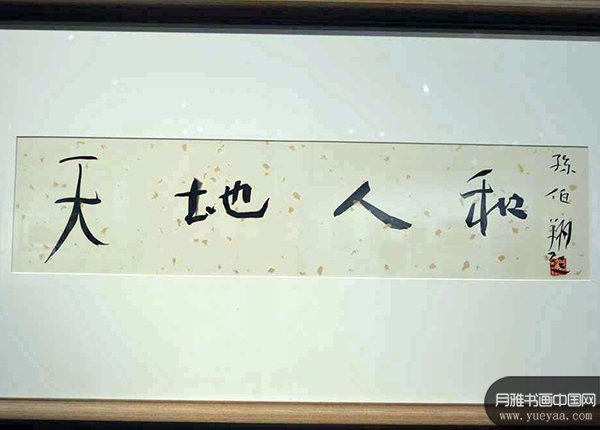 天地人和
孫伯翔
月雅书画中国网
www.yueyaa.com